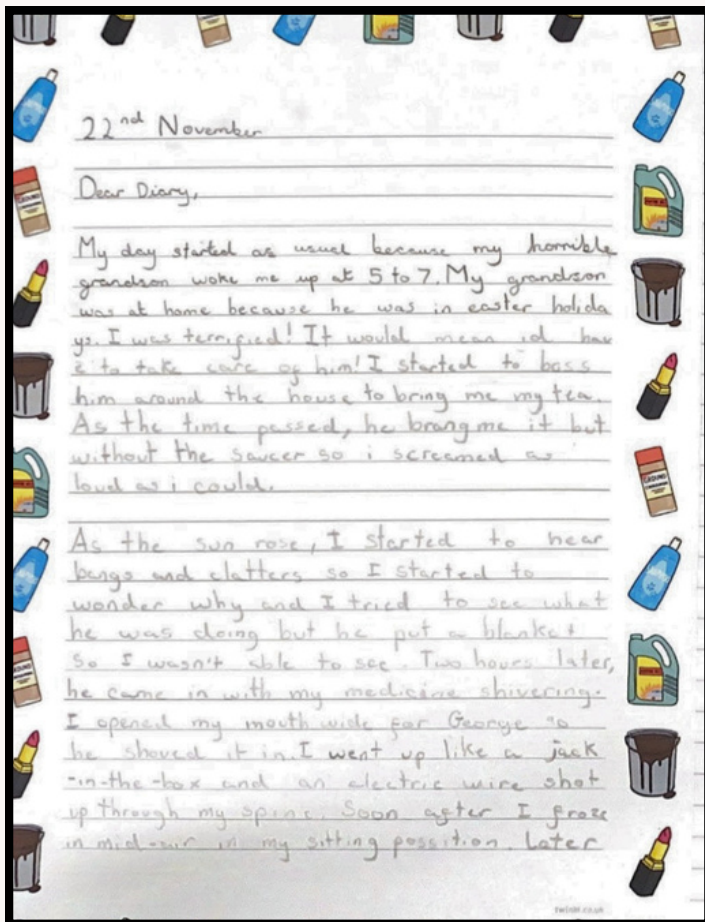 22nd November
Dear Diary,
My day started as usual because my horrible
grandson woke me up at 5 to 7. My grandson
was at home because he was in easter holida
ys. I was terrified! It would mean id hav
e to take care of him! I started to boss
him around the house to bring me my tea.
As the time passed, he brang me it but
without the saucer so i screamed as
loud as i could.
As the sun rose, I started to hear
bangs and clatters so I started to
wonder why and I tried to see what
he was doing but he put a blanket
so I wasn't able to see. Two hours later,
he came in with my medicine shivering.
I opened my mouth wide for George so
he shoved it in. I went up like a jack
-in-the-box and an electric wire shot
up through my spine. Soon after I froze
in mid-air in my sitting possition. Later